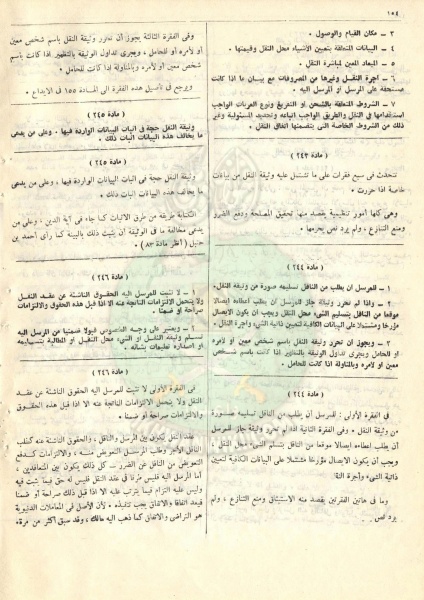 ١٥٤
٣ - مكان القيام والوصول .
٤ - البيانات المتعلقة بتعيين الاشياء محل النقل وقيمتها .
٥ - الميعاد المعين لمباشرة النقل .
٦ - اجرة النقل وغيرها من المصروفات مع بيان ما اذا كانت
مستحقة على المرسل أو المرسل اليه .
٧ - الشروط المتعلقة بالشحن أو التفريغ ونوع العربات الواجب
استخدامها في النقل والطريق الواجب اتباعه وتحديد المسئولية وغير
ذلك من الشروط الخاصة التي يتضمنها اتفاق النقل .
( مادة ٢٤٣ )
تتحدث في سبع فقرات على ما تشتمل عليه وثيقة النقل من بيانات
خاصة اذا حررت .
وهي كلها أمور تنظيمية يقصد منها تحقيق المصلحة ودفع الضرر
ومنع التنازع ، ولم يرد نص يحرمها .
( مادة ٢٤٤ )
١ - للمرسل أن يطلب من الناقل تسليمه صورة من وثيقة النقل .
٢ - واذا لم تحرر وثيقة جاز للمرسل أن يطلب اعطاءه ايصالا
موقعا من الناقل بتسليم الشيء محل النقل ويجب أن يكون الايصال
مؤرخا ومشتملا على البيانات الكافية لتعيين ذاتية الشيء وأجرة النقل .
٣ - ويجوز أن تحرر وثيقة النقل باسم شخص معين أو لأمره
أو للحامل ويجرى تداول الوثيقة بالتظهير اذا كانت باسم شخص
معين أو لأمره وبالمناولة اذا كانت للحامل .
( مادة ٢٤٤ )
في الفقرة الأولى : للمرسل أن يطلب من الناقل تسليمه صورة
من وثيقة النقل . وفي الفقرة الثانية اذا لم تحرر وثيقة جاز للمرسل
أن يطلب اعطاءه ايصالا موقعا من الناقل بتسلم الشيء محل النقل ،
ويجب أن يكون الايصال مؤرخا مشتملا على البيانات الكافية لتعيين
ذاتية الشيء وأجرة النقل
وما في هاتين الفقرتين يقصد منه الاستيثاق ومنع التنازع ، ولم
يرد نص .
وفي الفقرة الثالثة يجوز أن تحرر وثيقة النقل باسم شخص معين
أو لأمره أو للحامل ، ويجرى تداول الوثيقة بالتظهير اذا كانت باسم
شخص معين أو لأمره وبالمناولة اذا كانت للحامل .
ويرجع في تأصيل هذه الفقرة الى المادة ١٥٥ في الايداع .
( مادة ٢٤٥ )
وثيقة النقل حجة في اثبات البيانات الواردة فيها . وعلى من يدعى
ما يخالف هذه البيانات اثبات ذلك .
( مادة ٢٤٥ )
وثيقة النقل حجة في اثبات البيانات الواردة فيها ، وعلى من يدعى
ما يخالف هذه البيانات اثبات ذلك .
الكتابة طريقة من طرق الاثبات كما جاء في آية الدين ، وعلى من
يدعى مخالفة ما في الوثيقة أن يثبت ذلك بالبينة كما رأى أحمد بن
حنبل ( أنظر مادة ٨٣ ) .
( مادة ٢٤٦ )
١ - لا تثبت للمرسل اليه الحقوق الناشئة عن عقد النقل
ولا يتحمل الالتزامات الناتجة عنه الا اذا قبل هذه الحقوق والالتزامات
صراحة أو ضمنا .
٢ - ويعتبر على وجه الخصوص قبولا ضمنيا من المرسل اليه
تسلم وثيقة النقل أو الشيء محل النقل أو المطالبة بتسليمه
أو اصداره تعليمات بشأنه .
( مادة ٢٤٦ )
في الفقرة الأولى لا تثبت للمرسل اليه الحقوق الناشئة عن عقد
النقل ولا يتحمل الالتزامات الناتجة عنه الا اذا قبل هذه الحقوق
والالتزامات صراحة أو ضمنا .
عقد النقل يكون بين المرسل والناقل ، والحقوق الناتجة عنه كطلب
الناقل الأجر وطلب المرسل التعويض منه ، والالتزامات كدفع
التعويض من الناقل عن الضرر كل ذلك يكون بين المتعاقدين ،
أما المرسل اليه فليس طرفا في عقد النقل فليس له حق فيما ثبت فيه
وليس عليه التزام فيما يترتب عليه الا اذا قبل ذلك صراحة أو ضمنا
فيعد اتفاقا والاتفاق يجب تنفيذه ، لأن الأصل في المعاملات الدنيوية
هو التراضي والاتفاق كما ذهب اليه مالك ، وقد سبق أكثر من مرة .